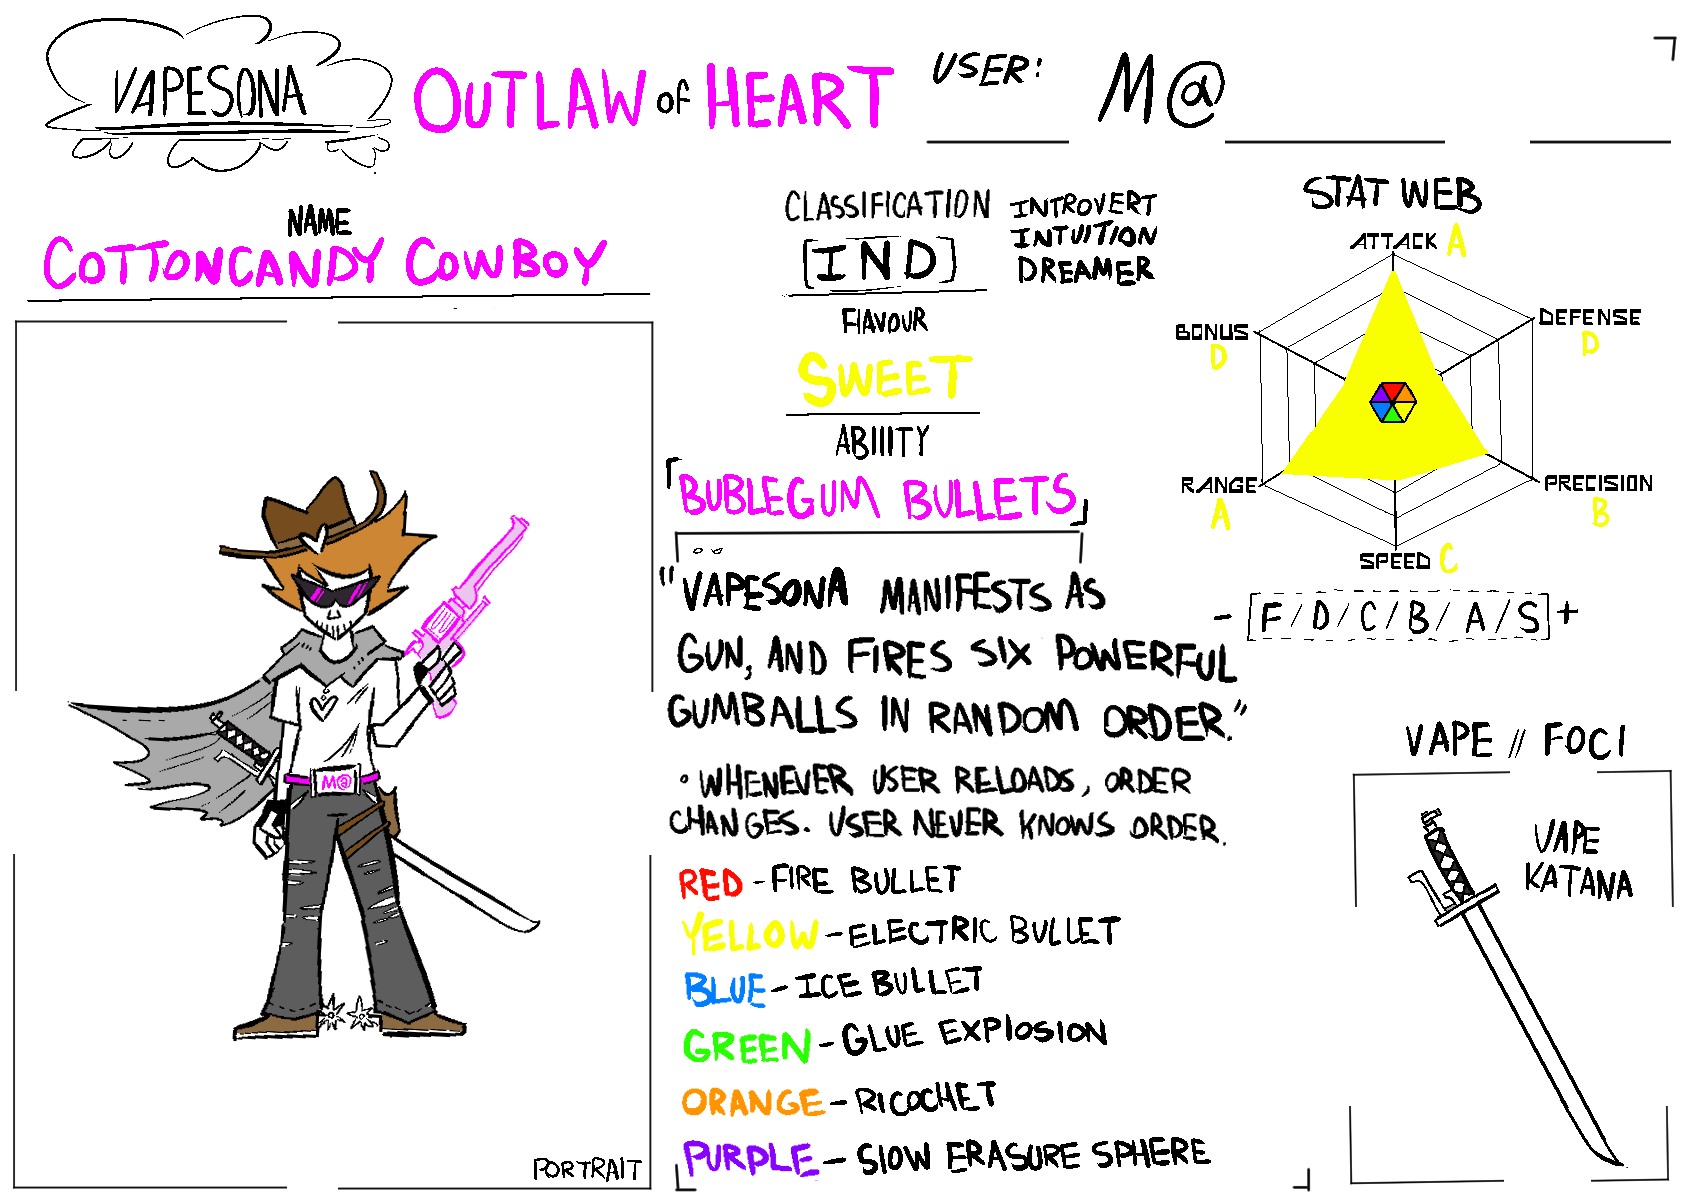 VAPESONA
OUTLAW of HEART
USER: M@
NAME
COTTONCANDY COWBOY
CLASSIFICATION
[IND]
INTROVERT
INTUITION
DREAMER
FLAVOUR
SWEET
ABILITY
「BUBLEGUM BULLETS」
"VAPESONA MANIFESTS AS
GUN, AND FIRES SIX POWERFUL
GUMBALLS IN RANDOM ORDER."
• WHENEVER USER RELOADS, ORDER
CHANGES. USER NEVER KNOWS ORDER.
RED - FIRE BULLET
YELLOW - ELECTRIC BULLET
BLUE - ICE BULLET
GREEN - GLUE EXPLOSION
ORANGE - RICOCHET
PURPLE - SLOW ERASURE SPHERE
STAT WEB
ATTACK A
BONUS
D
DEFENSE
D
RANGE
A
PRECISION
B
SPEED C
- [F/D/C/B/A/S] +
VAPE // FOCI
VAPE
KATANA
M@
PORTRAIT